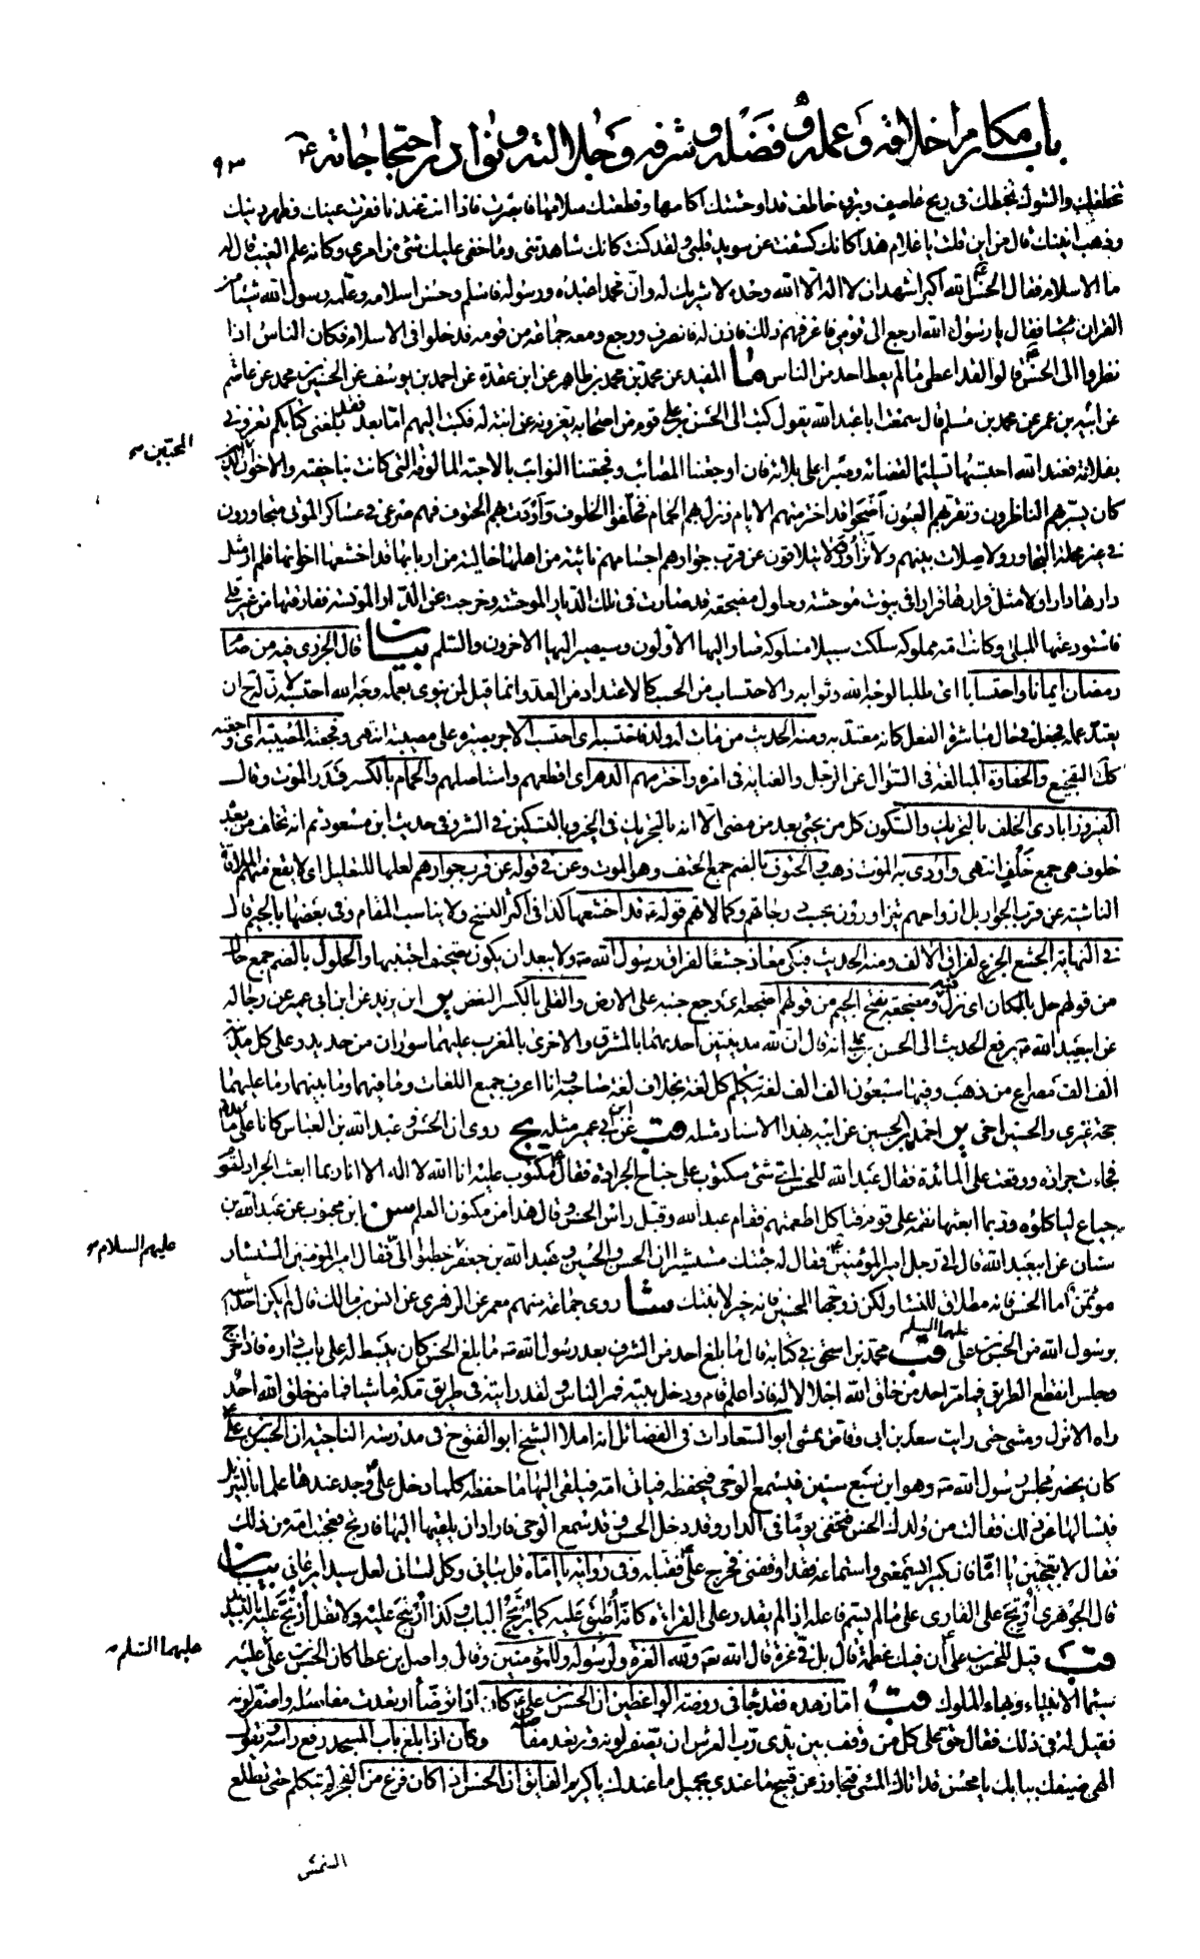 باب مكارم اخلاقه وعمله وفضله وشرفه وجلالته ونوادر احتجاجاته ع ٩٣
تخطفك والشوك تخبطك فى ريح عاصف وبرق خاطف قد اوحشتك اكامها وقطعتك سلامها فابصرت فاذا انت عندنا فقرت عينك وظهر رينك
وذهب انينك قال من اين قلت يا غلام هذا كانك كشفت عن سويد قلبى ولقد كنت كانك شاهدتنى وما خفى عليك شئ من امرى وكانه علم الغيب قال له
ما الاسلام فقال الحسن ع الله اكبر اشهد ان لا اله الا الله وحده لا شريك له وان محمدا عبده ورسوله فاسلم وحسن اسلامه وعلمه رسول الله شيئا من
القران فقال يا رسول الله ارجع الى قومى فاعرفهم ذلك فاذن له فانصرف ورجع ومعه جماعة من قومه فدخلوا فى الاسلام فكان الناس اذا
نظروا الى الحسن ع قالوا لقد اعطى ما لم يعط احد من الناس ما المفيد عن محمد بن محمد بن طاهر عن ابن عقدة عن احمد بن يوسف عن الحسين بن محمد عن
عن ابيه عن عمر عن محمد بن مسلم قال سمعت ابا عبد الله يقول كتب الى الحسن بن على قوم من اصحابه يعزونه عن ابنة له فكتب اليهم اما بعد فقد بلغنى كتابكم تعزونى
بفلانة فعند الله احتسبها تسليما لقضائه وصبرا على بلائه فان اوجعتنا المصائب وفجعتنا النوائب بالاحبة المالوفة التى كانت بنا حفية والاخوان المحبين الذين
كان يسر بهم الناظرون وتقر بهم العيون اضحوا قد اخترمهم الايام ونزل بهم الحمام فخلفوا الخلوف واودت بهم الحتوف فهم صرعى فى عساكر الموتى متجاورون
فى غير محلة التجاور ولا صلات بينهم ولا تزاور ولا يتلاقون عن قرب جوارهم اجسامهم نائية من اهلها خالية من اربابها قد اخشعها اخوانها فلم ار مثل
دارها دارا ولا مثل قرارها قرارا فى بيوت موحشة وحلول مضجعة قد صارت فى تلك الديار الموحشة وخرجت عن الدار المونسة ففارقتها من غير قلى
فاستودعتها للبلى وكانت امة مملوكة سلكت سبيلا مسلوكة صار اليها الاولون وسيصير اليها الاخرون والسلم بيان قال الجزرى فيه من صام
رمضان ايمانا واحتسابا اى طلبا لوجه الله وثوابه والاحتساب من الحسب كالاعتداد من العد وانما قيل لمن ينوى بعمله وجه الله احتسبه لان له ح ان
يعتد عمله فجعل فى حال مباشرة الفعل كانه معتد به ومنه الحديث من مات له ولد فاحتسبه اى احتسب الاجر بصبره على مصيبته انتهى وفجعته المصيبة اى اوجعته
كذا التفجيع والحفاوة المبالغة فى السؤال عن الرجل والعناية فى امره واخترمهم الدهر اى اقطعهم واستاصلهم والحمام بالكسر قدر الموت وقال
الفيروزابادى الخلف بالتحريك والسكون كل من يجئ بعد من مضى الا انه بالتحريك فى الخير وبالتسكين فى الشر وفى حديث ابن مسعود ثم انه تخلف من بعد
خلوف هى جمع خلف انتهى واودى به الموت ذهب والحتوف بالضم جمع الحتف وهو الموت وعن فى قوله عن قرب جوارهم لعلها للتعليل اى لا يقع منهم الملاقاة
الناشئة عن قرب الجوار بل ارواحهم يتزاورون بحسب درجاتهم وكمالاتهم قوله ع قد اخشعها كذا فى اكثر النسخ ولا يناسب المقام وفى بعضها بالجيم قال
فى النهاية الجشع الجزع لفراق الالف ومنه الحديث فبكى معاذ جشعا لفراق رسول الله ص ولا يبعد ان يكون تصحيف اجتنبها والحلول بالضم جمع حال
من قولهم حل بالمكان اى نزل فيه ومضجعة بفتح الجيم من قولهم اضجعه اى وضع جنبه على الارض والقلى بالكسر البغض ير ابن يزيد عن ابن ابى عمير عن رجاله
عن ابى عبد الله ع يرفع الحديث الى الحسن بن على انه قال ان لله مدينتين احديهما بالمشرق والاخرى بالمغرب عليهما سوران من حديد وعلى كل مدينة
الف الف مصراع من ذهب وفيها سبعون الف الف لغة يتكلم كل لغة بخلاف لغة صاحبه وانا اعرف جميع اللغات وما فيهما وما بينهما وما عليهما
حجة غيرى والحسين اخى ير احمد بن الحسين عن ابيه بهذا الاسناد مثله قب عن ابن ابى عمير مثله يج روى ان الحسن وعبد الله بن العباس كانا على مائدة
فجاءت جرادة ووقعت على المائدة فقال عبد الله للحسن اى شئ مكتوب على جناح الجرادة فقال ع مكتوب عليه انا الله لا اله الا انا ربما ابعث الجراد لقوم
جياع لياكلوه وربما ابعثها نقمة على قوم فتاكل اطعمتهم فقام عبد الله وقبل راس الحسن وقال هذا من مكنون العلم سن ابن محبوب عن عبد الله بن
سنان عن ابى عبد الله قال اتى رجل امير المؤمنين ع فقال له جئتك مستشيرا ان الحسن والحسين وعبد الله بن جعفر خطبوا الى فقال امير المؤمنين المستشار
مؤتمن اما الحسن فانه مطلاق للنساء ولكن زوجها الحسين فانه خير لابنتك شا روى جماعة منهم معمر عن الزهرى عن انس بن مالك قال لم يكن احد اشبه
برسول الله من الحسن بن على عليهما السلم قب محمد بن اسحق فى كتابه قال ما بلغ احد من الشرف بعد رسول الله ص ما بلغ الحسن كان يبسط له على باب داره فاذا خرج
وجلس انقطع الطريق فما مر احد من خلق الله اجلالا له فاذا علم قام ودخل بيته فمر الناس ولقد رايته فى طريق مكة ماشيا فما من خلق الله احد
راه الا نزل ومشى حتى رايت سعد بن ابى وقاص يمشى ابو السعادات فى الفضائل انه املا الشيخ ابو الفتوح فى مدرسة الناجية ان الحسن بن على ع
كان يحضر مجلس رسول الله ص وهو ابن سبع سنين فيسمع الوحى فيحفظه فياتى امه فيلقى اليها ما حفظه كلما دخل على ع وجد عندها علما بالتنزيل
فيسالها عن ذلك فقالت من ولدك الحسن فتخفى يوما فى الدار وقد دخل الحسن وقد سمع الوحى فاراد ان يلقيها اليها فارتج فعجبت امه من ذلك
فقال لا تعجبين يا اماه فان كبيرا يسمعنى واستماعه فقد اوقفنى فخرج على ع فقبله وفى رواية يا اماه قل بيانى وكل لسانى لعل سيدا يرعانى بيان
قال الجوهرى ارتج على القارى على ما لم يسم فاعله اذا لم يقدر على القراءة كانه اطبق عليه كما يرتج الباب وكذا ارتتج عليه ولا تقل ارتج عليه بالتشديد
قب قيل للحسن بن على ع ان فيك عظمة قال بل فى عزة قال الله تعه ولله العزة ولرسوله وللمؤمنين وقال واصل بن عطا كان الحسن بن على عليه
سيما الانبياء وبهاء الملوك قب اما زهده فقد جاء فى روضة الواعظين ان الحسن بن على ع كان اذا توضأ ارتعدت مفاصله واصفر لونه
فقيل له فى ذلك فقال حق على كل من وقف بين يدى رب العرش ان يصفر لونه وترتعد مفاصله وكان اذا بلغ باب المسجد رفع راسه ويقول
الهى ضيفك ببابك يا محسن قد اتاك المسئ فتجاوز عن قبيح ما عندى بجميل ما عندك يا كريم الفائق ان الحسن اذا كان فرغ من الفجر لم يتكلم حتى تطلع
المحبين
عليهم السلام
عليهما السلم
الشمس